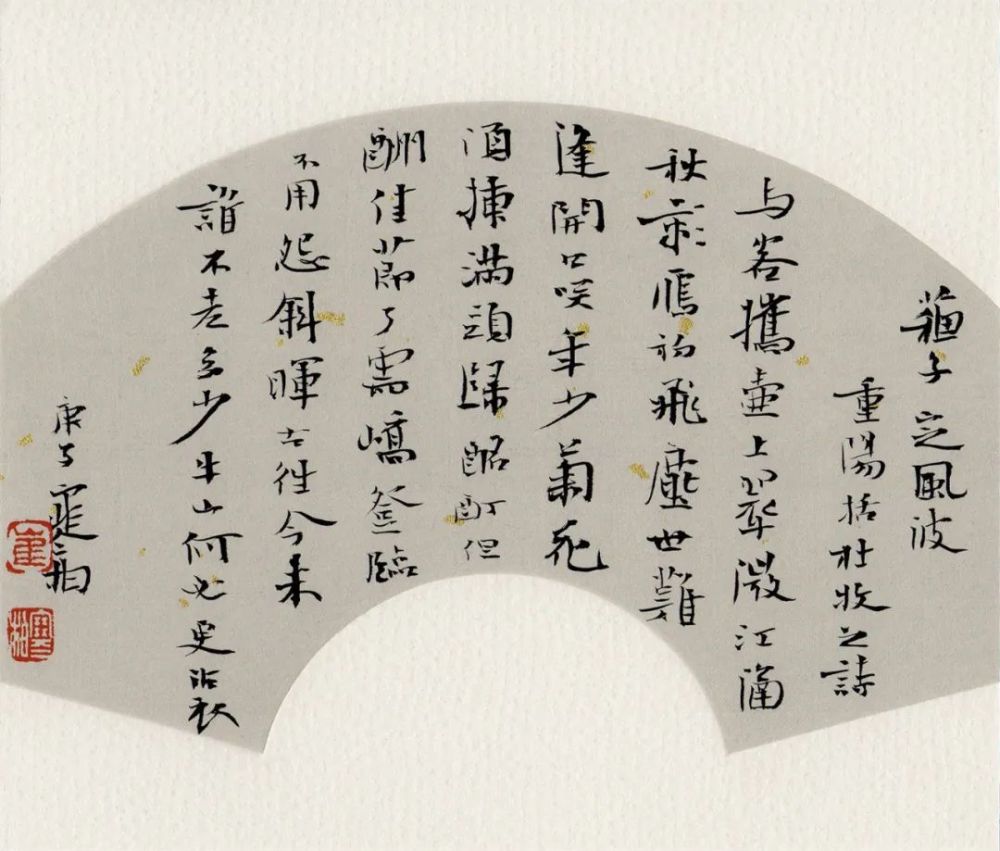 蘓子定風波
重陽括杜牧之詩
与客攜壺上翠微江涵
秋影鴈初飛塵世難
逢開口咲年少菊花
湏插滿頭歸酩酊但
酬佳節了雲嶠登臨
不用怨斜暉古往今来
誰不老多少牛山何必更沾衣
庚子寒柏
崔
寒柏